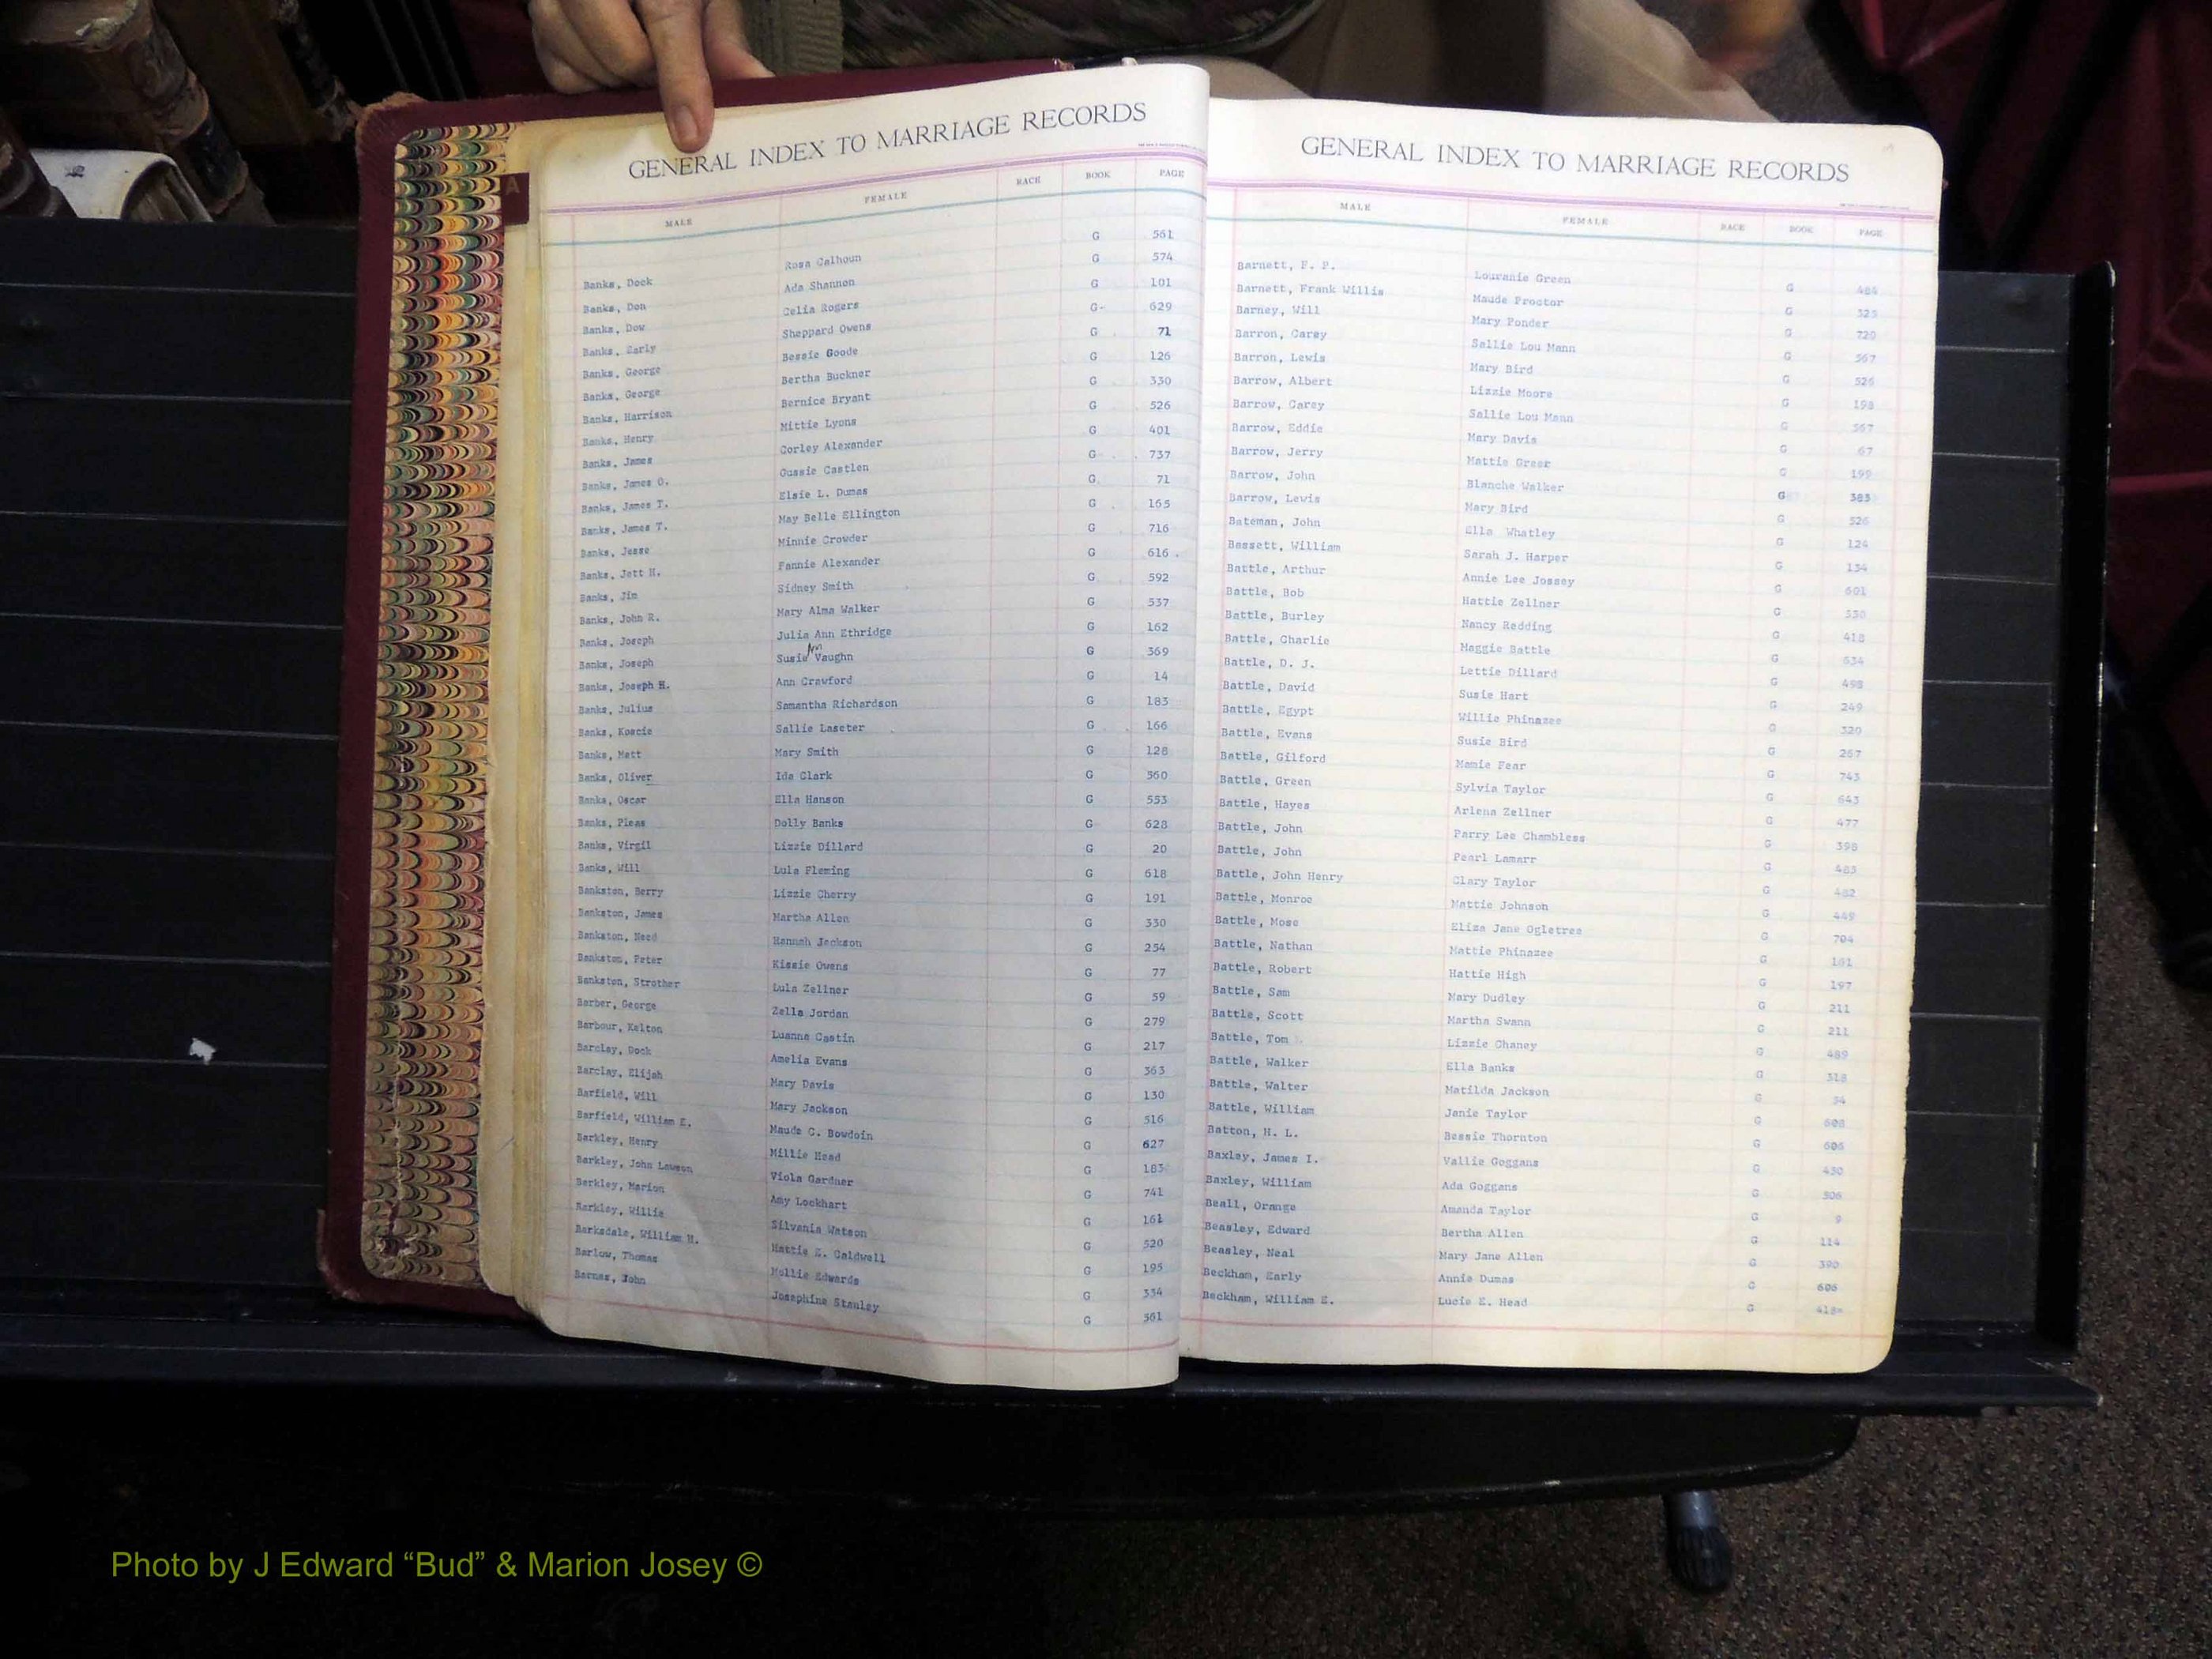 GENERAL INDEX TO MARRIAGE RECORDS
MALE FEMALE RACE BOOK PAGE
Banks, Dock Rosa Calhoun G 561
Banks, Don Ada Shannon G 574
Banks, Dow Celia Rogers G 101
Banks, Early Sheppard Owens G- 629
Banks, George Bessie Goode G 71
Banks, George Bertha Buckner G 126
Banks, Harrison Bernice Bryant G 330
Banks, Henry Mittie Lyons G 526
Banks, James Corley Alexander G 401
Banks, James O. Gussie Castlen G 737
Banks, James T. Elsie L. Dumas G 71
Banks, James T. May Belle Ellington G 165
Banks, Jesse Minnie Crowder G 716
Banks, Jett H. Fannie Alexander G 616
Banks, Jim Sidney Smith G 592
Banks, John R. Mary Alma Walker G 537
Banks, Joseph Julia Ann Ethridge G 162
Banks, Joseph Susie Ann Vaughn G 369
Banks, Joseph H. Ann Crawford G 14
Banks, Julius Samantha Richardson G 183
Banks, Koscie Sallie Laseter G 166
Banks, Matt Mary Smith G 128
Banks, Oliver Ida Clark G 560
Banks, Oscar Ella Hanson G 553
Banks, Pleas Dolly Banks G 628
Banks, Virgil Lizzie Dillard G 20
Banks, Will Lula Fleming G 618
Bankston, Berry Lizzie Cherry G 191
Bankston, James Martha Allen G 330
Bankston, Need Hannah Jackson G 254
Bankston, Peter Kissie Owens G 77
Bankston, Strother Lula Zellner G 59
Barber, George Zella Jordan G 279
Barbour, Kelton Luanna Castin G 217
Barclay, Dock Amelia Evans G 363
Barclay, Elijah Mary Davis G 130
Barfield, Will Mary Jackson G 516
Barfield, William E. Maude C. Bowdoin G 627
Barkley, Henry Millie Head G 183
Barkley, John Lawson Viola Gardner G 741
Barkley, Marion Amy Lockhart G 161
Barkley, Willie Silvania Watson G 520
Barksdale, William H. Hattie E. Caldwell G 195
Barlow, Thomas Mollie Edwards G 334
Barnes, John Josephine Stanley G 561
GENERAL INDEX TO MARRIAGE RECORDS
MALE FEMALE RACE BOOK PAGE
Barnett, F. F. Louranie Green G 484
Barnett, Frank Willis Maude Proctor G 325
Barney, Will Mary Ponder G 720
Barron, Carey Sallie Lou Mann G 567
Barron, Lewis Mary Bird G 526
Barrow, Albert Lizzie Moore G 198
Barrow, Carey Sallie Lou Mann G 567
Barrow, Eddie Mary Davis G 67
Barrow, Jerry Mattie Greer G 199
Barrow, John Blanche Walker G 383
Barrow, Lewis Mary Bird G 526
Bateman, John Ella Whatley G 124
Bassett, William Sarah J. Harper G 134
Battle, Arthur Annie Lee Jossey G 601
Battle, Bob Hattie Zellner G 530
Battle, Burley Nancy Redding G 418
Battle, Charlie Maggie Battle G 634
Battle, D. J. Lettie Dillard G 498
Battle, David Susie Hart G 249
Battle, Egypt Willie Phinazee G 320
Battle, Evans Susie Bird G 267
Battle, Gilford Mamie Fear G 743
Battle, Green Sylvia Taylor G 643
Battle, Hayes Arlena Zellner G 477
Battle, John Parry Lee Chambless G 398
Battle, John Pearl Lamarr G 485
Battle, John Henry Clary Taylor G 482
Battle, Monroe Mattie Johnson G 449
Battle, Mose Eliza Jane Ogletree G 704
Battle, Nathan Mattie Phinazee G 181
Battle, Robert Hattie High G 197
Battle, Sam Mary Dudley G 211
Battle, Scott Martha Swann G 211
Battle, Tom Lizzie Chaney G 489
Battle, Walker Ella Banks G 318
Battle, Walter Matilda Jackson G 54
Battle, William Janie Taylor G 608
Batton, H. L. Bessie Thornton G 606
Baxley, James I. Vallie Goggans G 430
Baxley, William Ada Goggans G 506
Beall, Orange Amanda Taylor G 9
Beasley, Edward Bertha Allen G 114
Beasley, Neal Mary Jane Allen G 390
Beckham, Early Annie Dumas G 606
Beckham, William E. Lucie E. Head G 418
Photo by J Edward “Bud” & Marion Josey ©